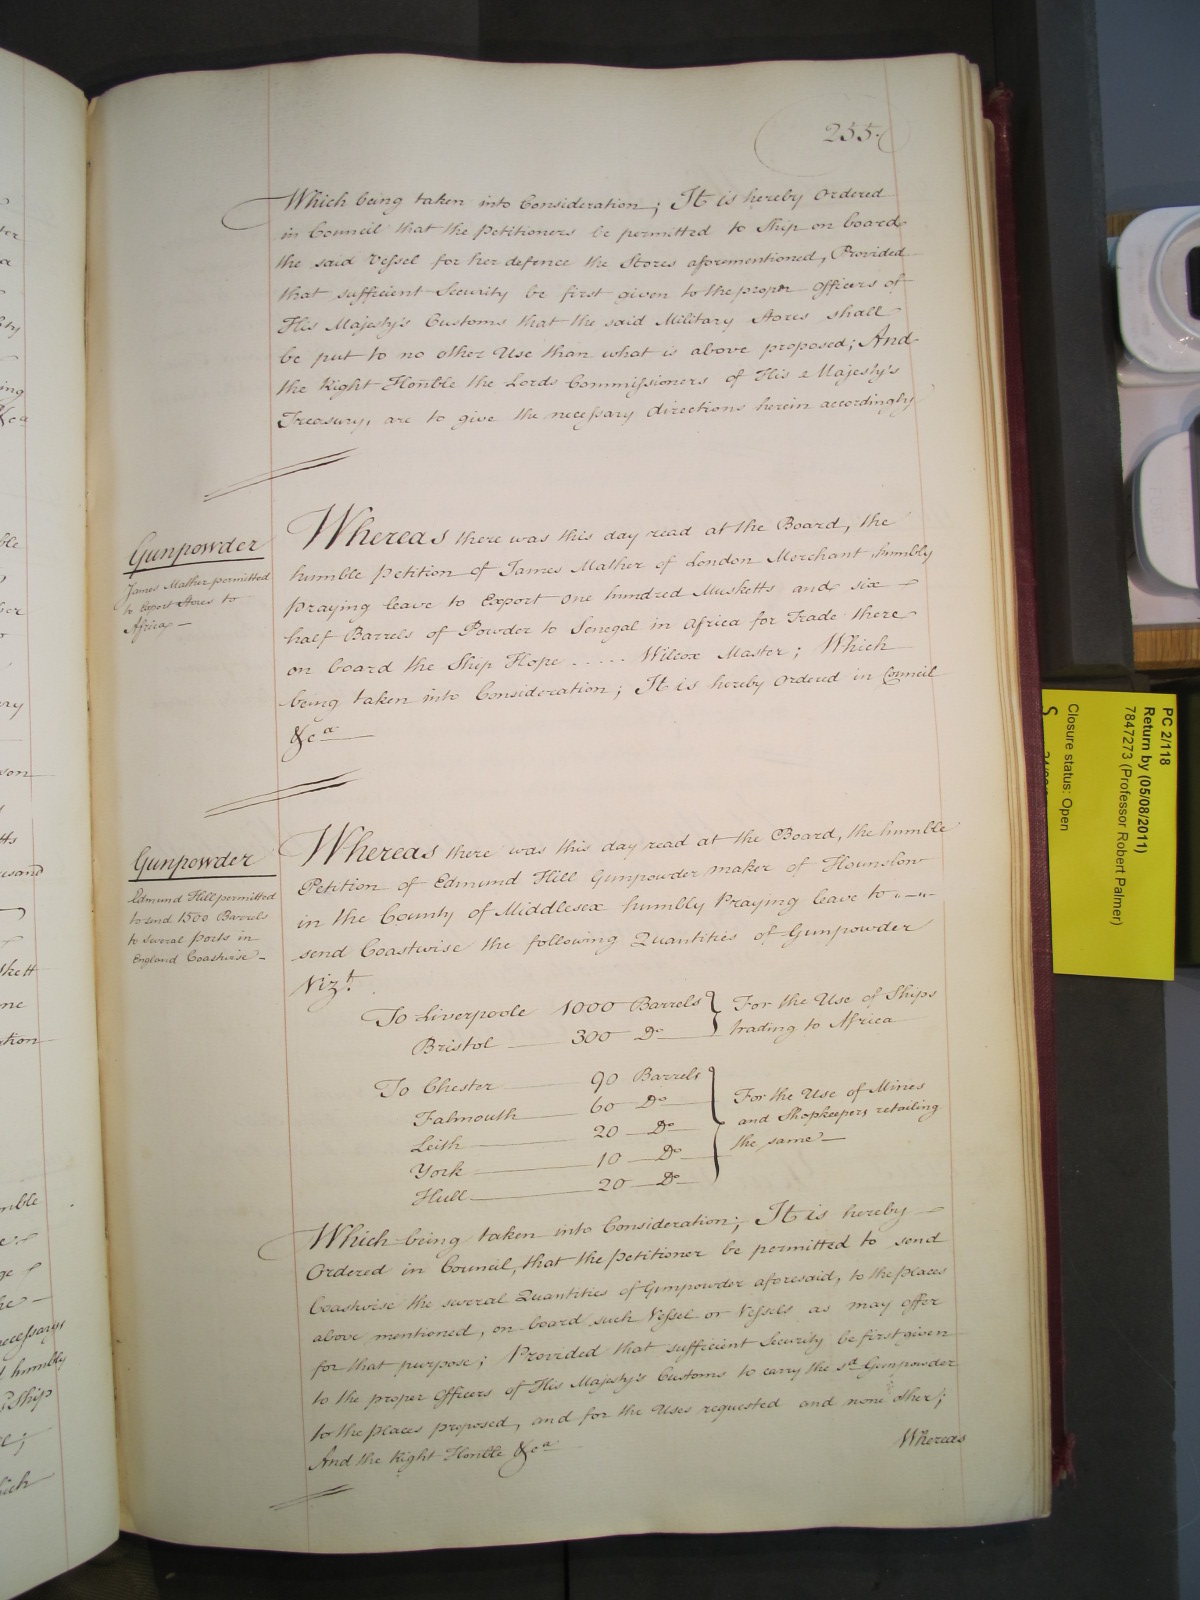 255.
Which being taken into Consideration; It is hereby Ordered
in Council that the Petitioners be permitted to Ship on board
the said Vessel for her defence the Stores aforementioned, Provided
that sufficient Security be first given to the proper Officers of
His Majesty's Customs that the said Military Stores shall
be put to no other Use than what is above proposed; And
the Right Honble the Lords Commissioners of His Majesty's
Treasury, are to give the necessary directions herein accordingly
Gunpowder
James Mather permitted
to Export Stores to
Africa —
Whereas there was this day read at the Board, the
humble Petition of James Mather of London Merchant humbly
Praying leave to Export one hundred Musketts and six —
half Barrels of Powder to Senegal in Africa for Trade there
on board the Ship Hope ..... Wilcox Master; Which
being taken into Consideration; It is hereby Ordered in Council
&ca
Gunpowder
Edmund Hill permitted
to send 1500 Barrels
to several Ports in
England Coastwise —
Whereas there was this day read at the Board, the humble
Petition of Edmund Hill Gunpowder maker of Hounslow
in the County of Middlesex humbly Praying leave to
send Coastwise the following Quantities of Gunpowder
Vizt.
To Liverpoole 1000 Barrels } For the Use of Ships
Bristol — 300 Do — } trading to Africa
To Chester — 90 Barrels
Falmouth — 60 Do — } For the Use of Mines
Leith — 20 — Do — } and Shopkeepers retailing
York — 10 — Do } the same —
Hull — 20 — Do
Which being taken into Consideration; It is hereby —
Ordered in Council, that the Petitioner be permitted to send
Coastwise the several Quantities of Gunpowder aforesaid, to the places
above mentioned, on board such Vessel or Vessels as may offer
for that purpose; Provided that sufficient Security be first given
to the proper Officers of His Majesty's Customs to carry the sd Gunpowder
to the places proposed, and for the Uses requested and none other;
And the Right Honble &ca
Whereas
PC 2/118
Return by (05/08/2011)
7847273 (Professor Robert Palmer)
Closure status: Open
S